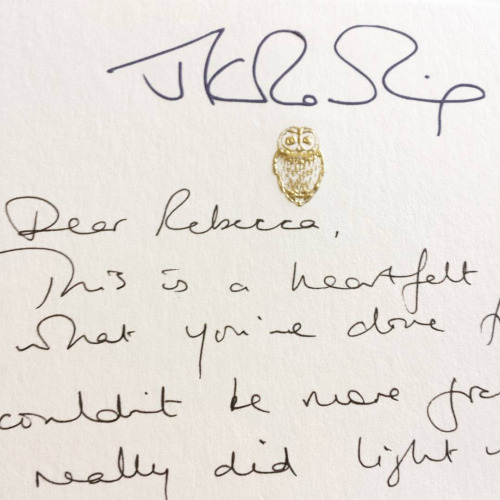 JK Rowling
Dear Rebecca,
This is a heartfelt
what you've done
couldn't be more
really did light